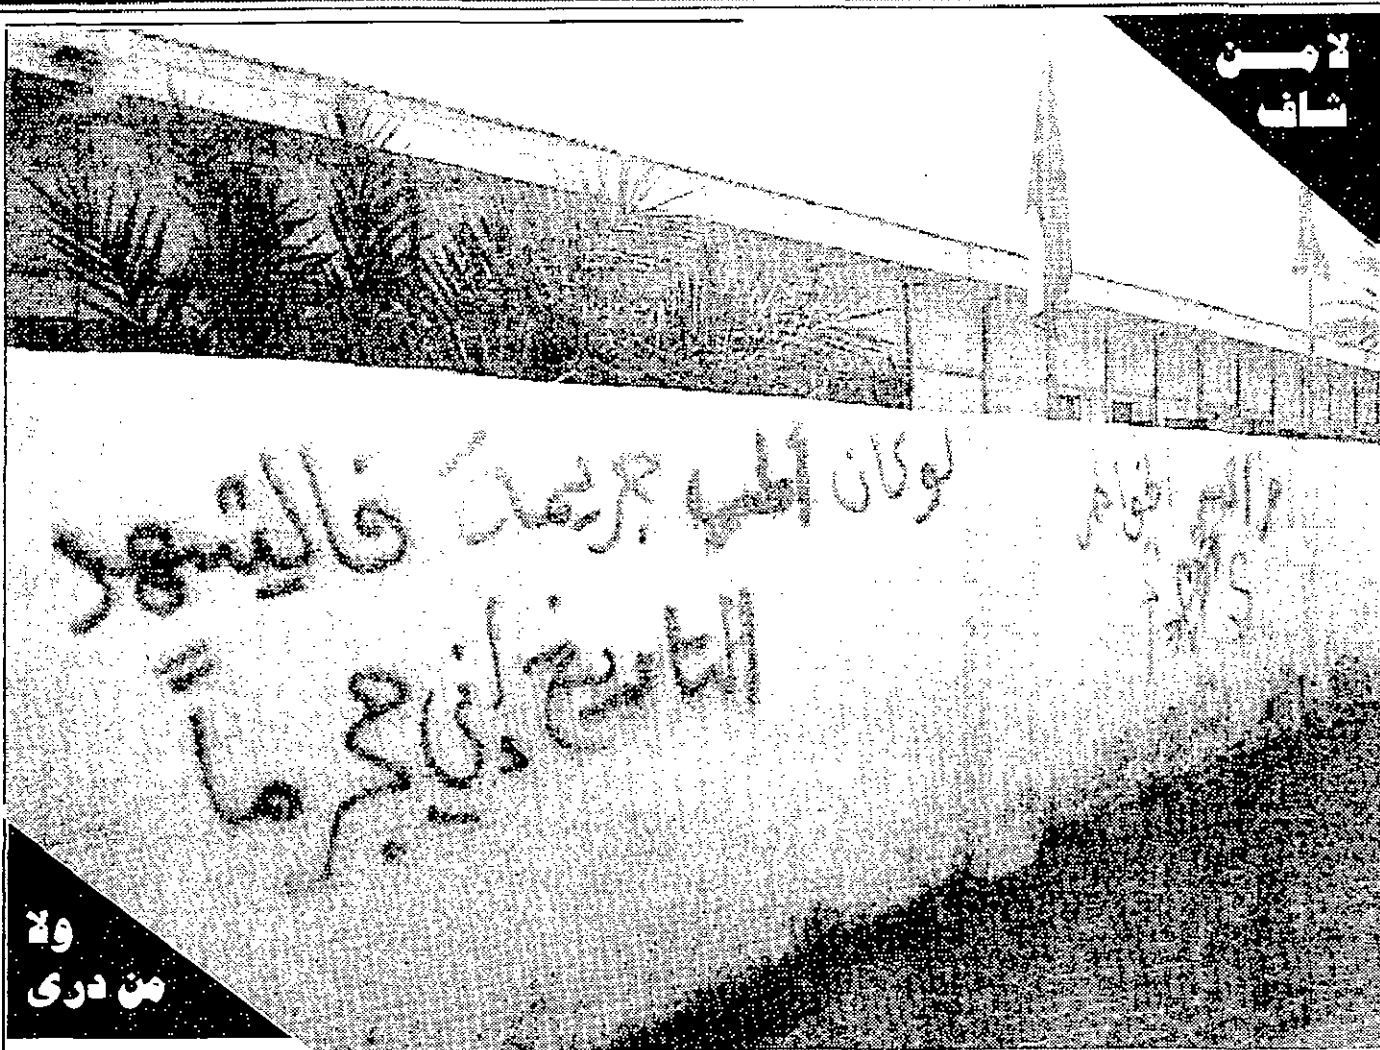 لا من
شاف
لوكان الحب جريمة فاليشهد
التاريخ إني مجرمة
ولا
من درى